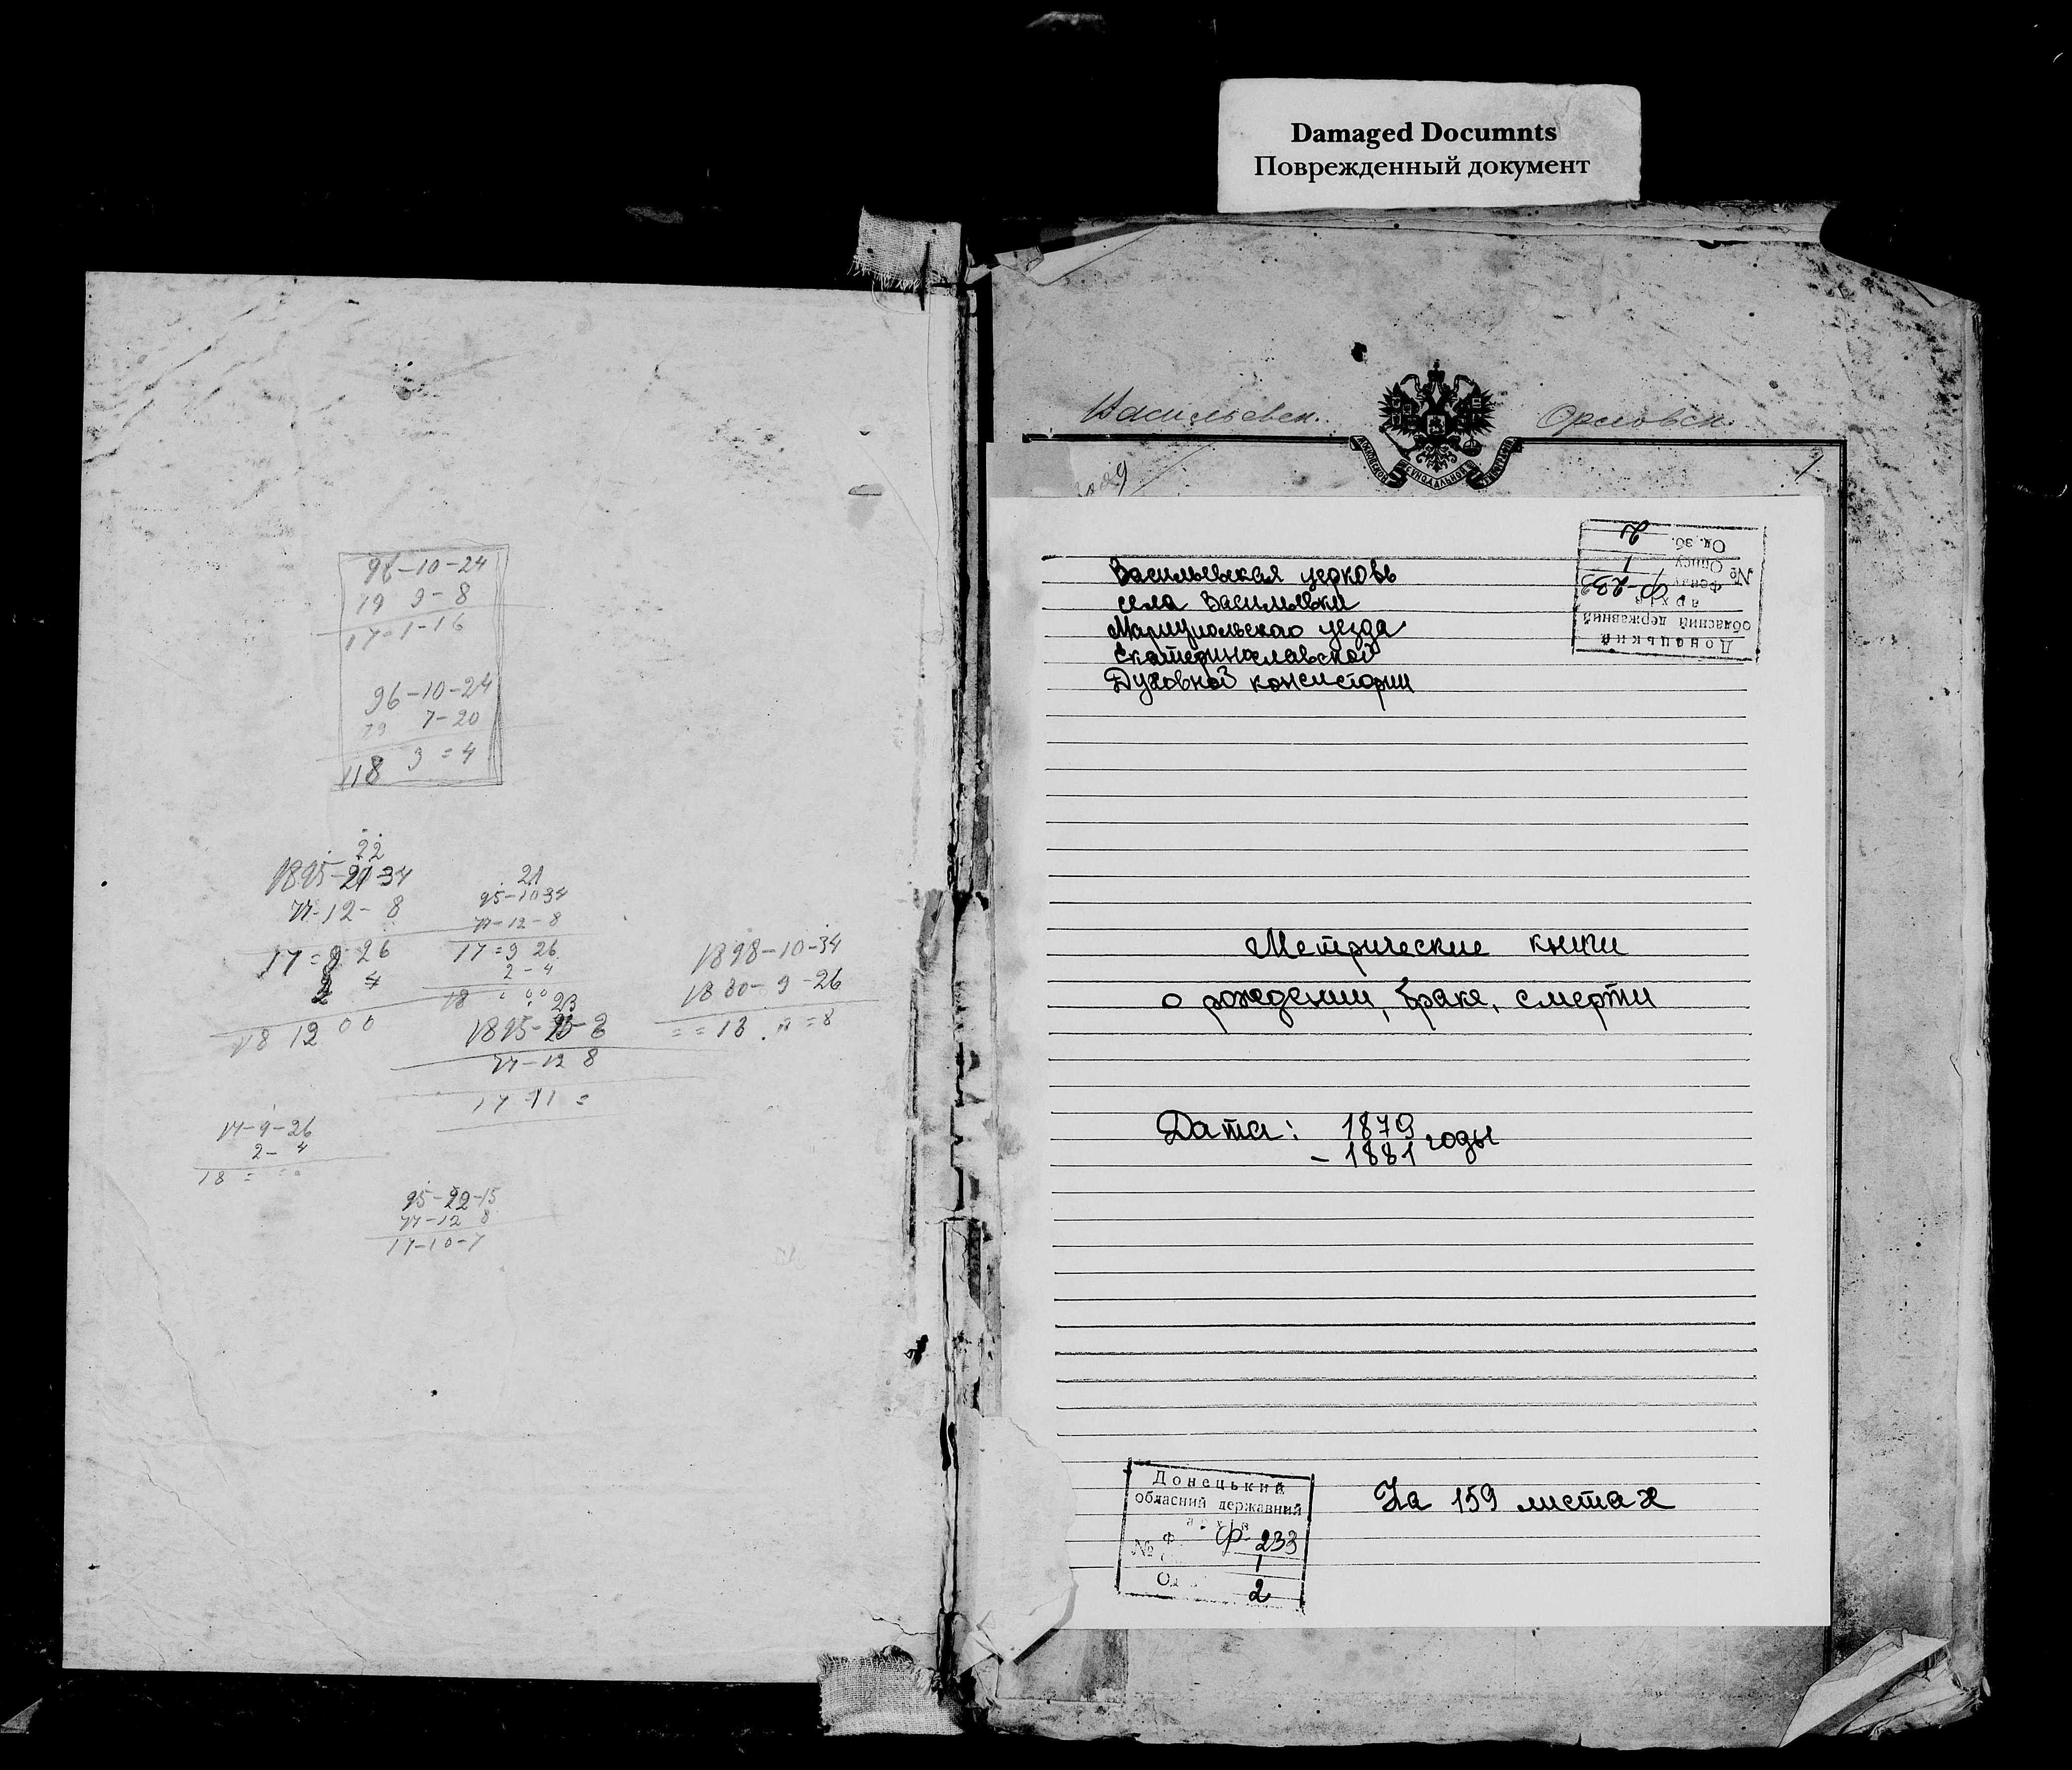 Damaged Documnts
Поврежденный документ
98-10-24
19 9-8
17-1-16
96-10-24
79 7-20
118 9=4
22
1895-21-34
77-12-8
17=9 26
2 4
18 12 00
21
95-10 34
77-12-8
17=9 26
2-4
18
23
1895-25-8
77-12 8
17 11 =
1898-10-34
1880-9-26
==18 . =8
17-9-26
2-4
18 =
95-22-15
77-12 8
17-10-7
Васильевск. Орловск.
МОСКОВСКОЙ СѴНОДАЛЬНОЙ ТИПОГРАФІИ
1
Донецький
обласний державний
архів
№ Фонду Ф-233
Опису 1
Од. зб. 2
Васильевская церковь
села Васильевки
Мариупольского уезда
Екатеринославской
Духовной консистории
Метрические книги
о рождении, браке, смерти
Дата: 1879
- 1881 годы
На 159 листах
Донецький
обласний державний
архів
№ Ф Ф-233
1
Од 2